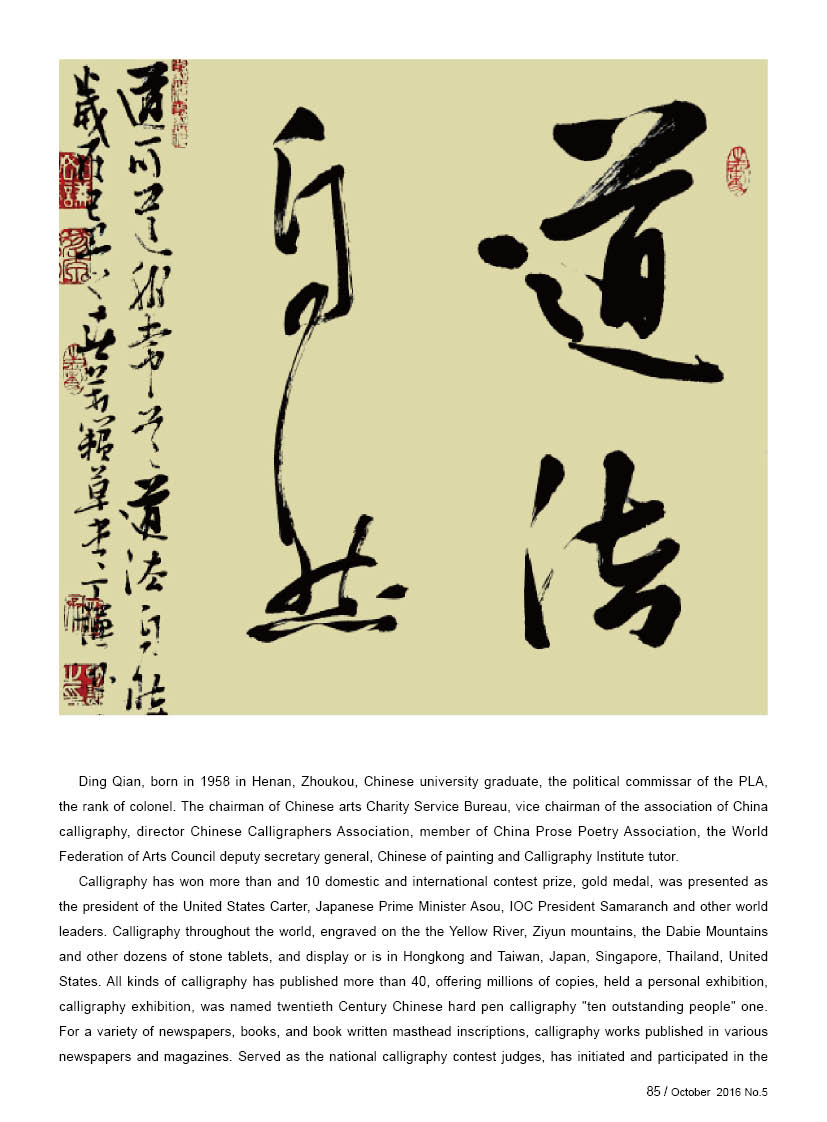 道法
自然
道可道非常道道法自然
歲草堂丁謙
Ding Qian, born in 1958 in Henan, Zhoukou, Chinese university graduate, the political commissar of the PLA,
the rank of colonel. The chairman of Chinese arts Charity Service Bureau, vice chairman of the association of China
calligraphy, director Chinese Calligraphers Association, member of China Prose Poetry Association, the World
Federation of Arts Council deputy secretary general, Chinese of painting and Calligraphy Institute tutor.
Calligraphy has won more than and 10 domestic and international contest prize, gold medal, was presented as
the president of the United States Carter, Japanese Prime Minister Asou, IOC President Samaranch and other world
leaders. Calligraphy throughout the world, engraved on the the Yellow River, Ziyun mountains, the Dabie Mountains
and other dozens of stone tablets, and display or is in Hongkong and Taiwan, Japan, Singapore, Thailand, United
States. All kinds of calligraphy has published more than 40, offering millions of copies, held a personal exhibition,
calligraphy exhibition, was named twentieth Century Chinese hard pen calligraphy "ten outstanding people" one.
For a variety of newspapers, books, and book written masthead inscriptions, calligraphy works published in various
newspapers and magazines. Served as the national calligraphy contest judges, has initiated and participated in the
85 / October 2016 No.5